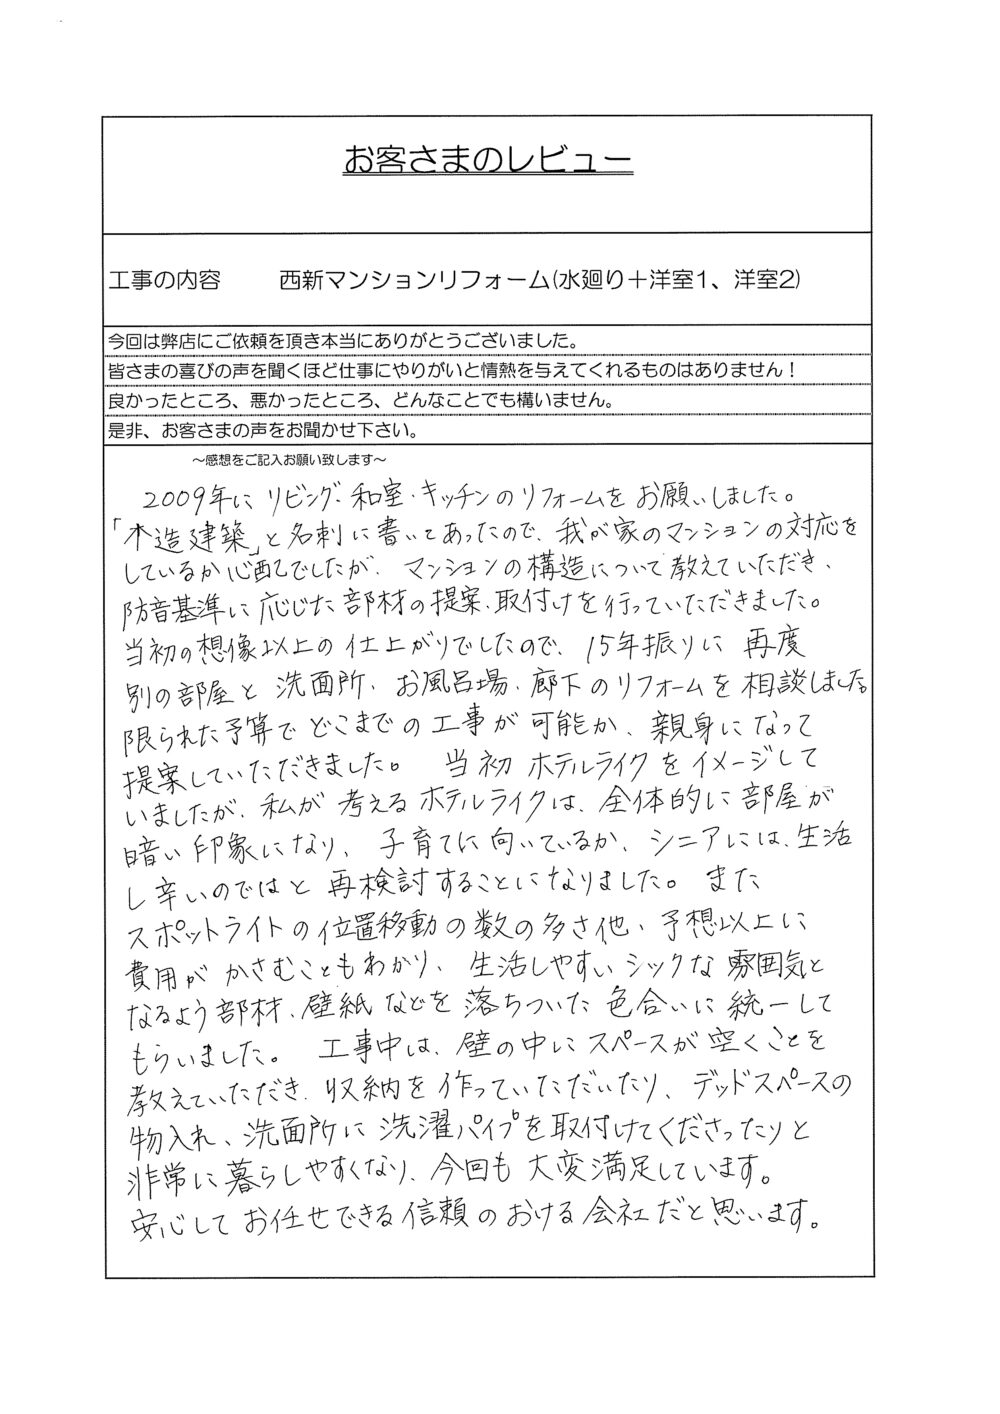 お客さまのレビュー
工事の内容　西新マンションリフォーム(水廻り＋洋室1、洋室2)
今回は弊店にご依頼を頂き本当にありがとうございました。
皆さまの喜びの声を聞くほど仕事にやりがいと情熱を与えてくれるものはありません！
良かったところ、悪かったところ、どんなことでも構いません。
是非、お客さまの声をお聞かせ下さい。
～感想をご記入お願い致します～
2009年に リビング・和室・キッチンのリフォームを お願いしました。
「木造建築」と名刺に書いてあったので、我が家のマンションの対応を
しているか心配でしたが、マンションの構造について教えていただき、
防音基準に応じた部材の提案、取付けを行っていただきました。
当初の想像以上の仕上がりでしたので、15年振りに再度
別の部屋と洗面所、お風呂場、廊下のリフォームを相談しました。
限られた予算でどこまでの工事が可能か、親身になって
提案していただきました。 当初 ホテルライクをイメージして
いましたが、私が考えるホテルライクは、全体的に部屋が
暗い印象になり、子育てに向いているか、シニアには、生活
し辛いのではと再検討することになりました。また
スポットライトの位置移動の数の多さ他、予想以上に
費用がかさむこともわかり、生活しやすいシックな雰囲気と
なるよう部材、壁紙などを落ちついた色合いに統一して
もらいました。 工事中は、壁の中にスペースが空くことを
教えていただき、収納を作っていただいたり、デッドスペースの
物入れ、洗面所に洗濯パイプを取付けてくださったりと
非常に暮らしやすくなり、今回も大変満足しています。
安心してお任せできる信頼のおける会社だと思います。